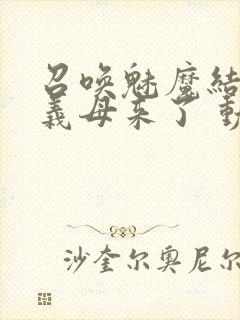 召唤魅魔结
義母来了 動
沙奎尔奥尼尔